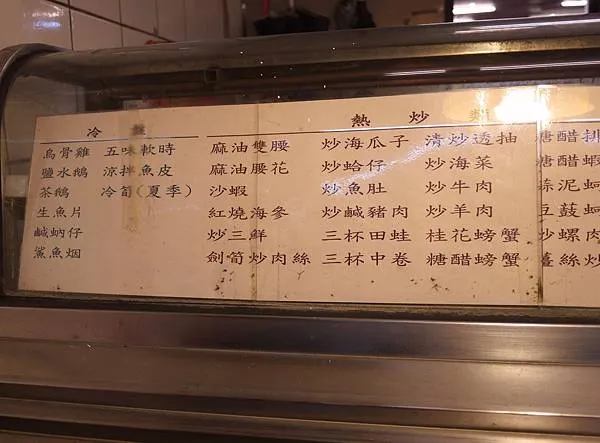 冷盤
烏骨雞 五味軟時
鹽水鵝 涼拌魚皮
茶鵝 冷筍(夏季)
生魚片
鹹蚋仔
鯊魚烟
熱炒類
麻油雙腰 炒海瓜子 清炒透抽 糖醋排
麻油腰花 炒蛤仔 炒海菜 糖醋
沙蝦 炒魚肚 炒牛肉 蒜泥
紅燒海參 炒鹹豬肉 炒羊肉 豆鼓
炒三鮮 三杯田蛙 桂花螃蟹 炒螺肉
劍筍炒肉絲 三杯中卷 糖醋螃蟹 薑絲炒